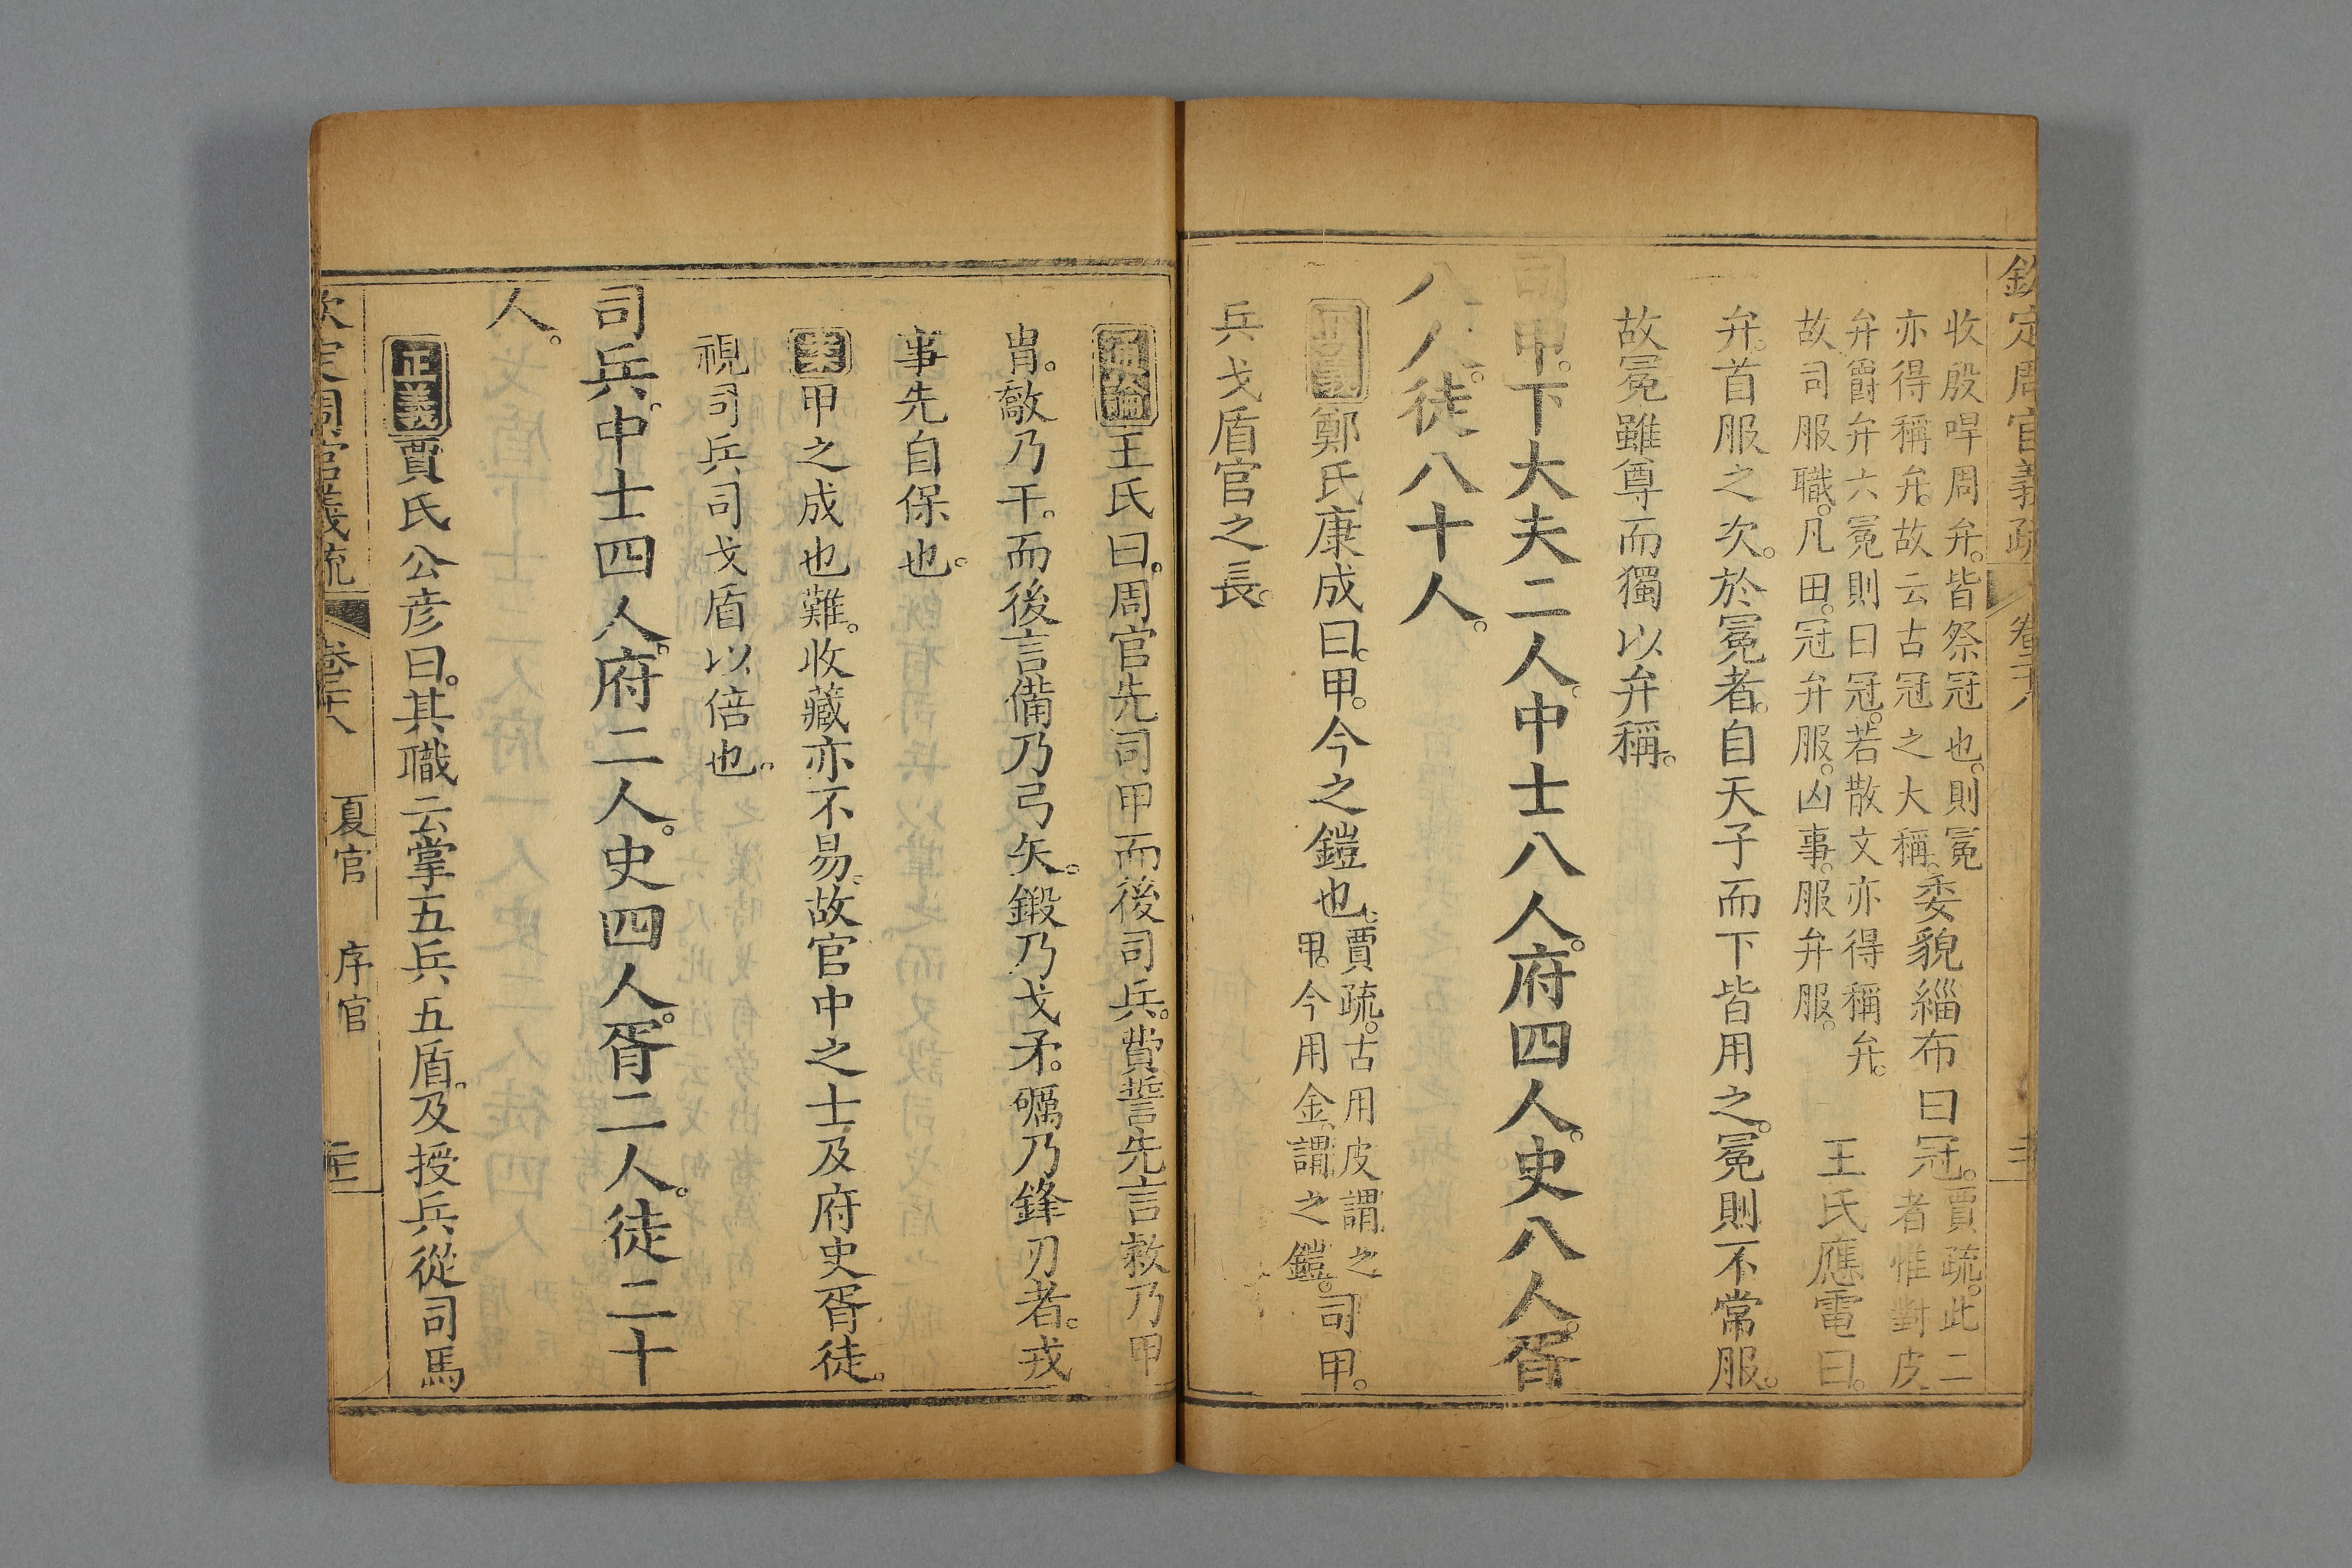 欽定周官義疏 卷二十八
收殷哻周弁。皆祭冠也。則冕
亦得稱弁。故云古冠之大稱。
委貌緇布曰冠。
賈疏。此二
者惟對皮
弁爵弁六冕則曰冠。若散文亦得稱弁。
故司服職。凡田。冠弁服。凶事。服弁服。
王氏應電曰。
弁。首服之次。於冕者。自天子而下皆用之。冕則不常服。
故冕雖尊而獨以弁稱。
司甲。下大夫二人。中士八人。府四人。史八人。胥
八人。徒八十人。
正義鄭氏康成曰。甲。今之鎧也。
賈疏。古用皮謂之
甲。今用金謂之鎧。
司甲。
兵戈盾官之長。
通論王氏曰。周官先司甲而後司兵。費誓先言敹乃甲
冑。敵乃干。而後言備乃弓矢。鍛乃戈矛。礪乃鋒刃者。戎
事先自保也。
案甲之成也難。收藏亦不易。故官中之士及府史胥徒。
視司兵司戈盾以倍也。
司兵。中士四人。府二人。史四人。胥二人。徒二十
人。
正義賈氏公彦曰。其職云掌五兵五盾。及授兵從司馬
欽定周官義疏 卷二十八 夏官 序官